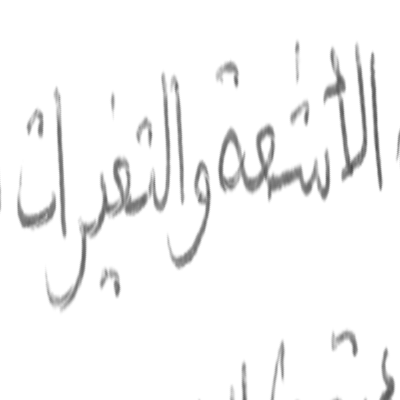 الأشعة والتغيرات